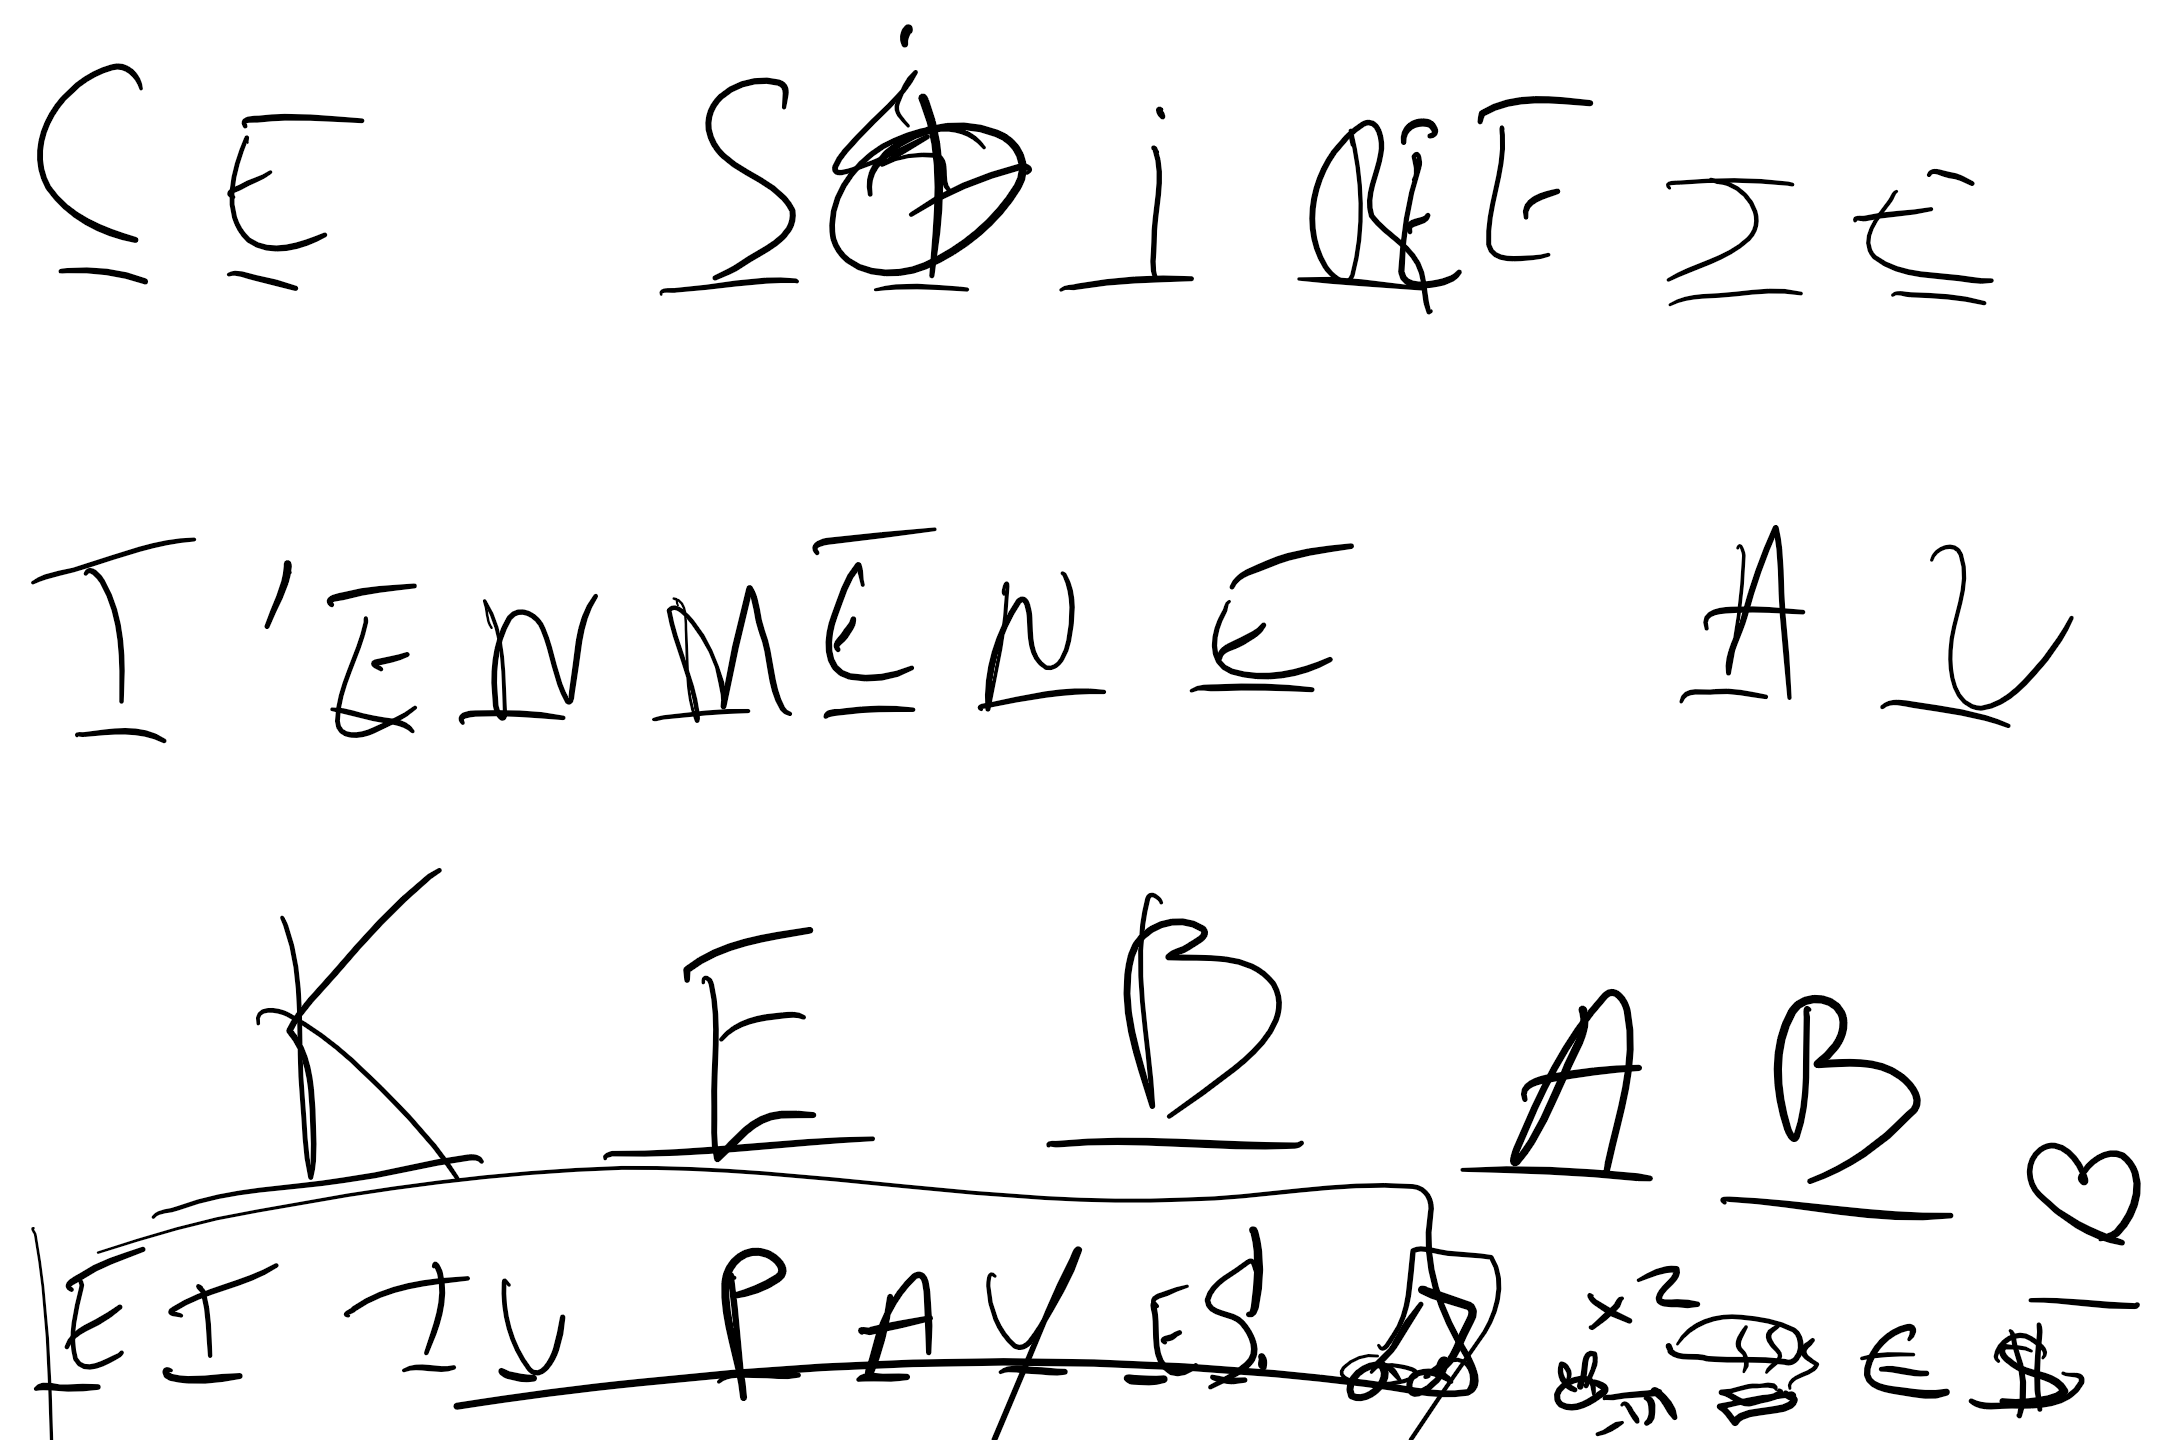 CE SOIR JE
T'EMMÈNE AU
KEBAB
ET TU PAYES!
x² € $